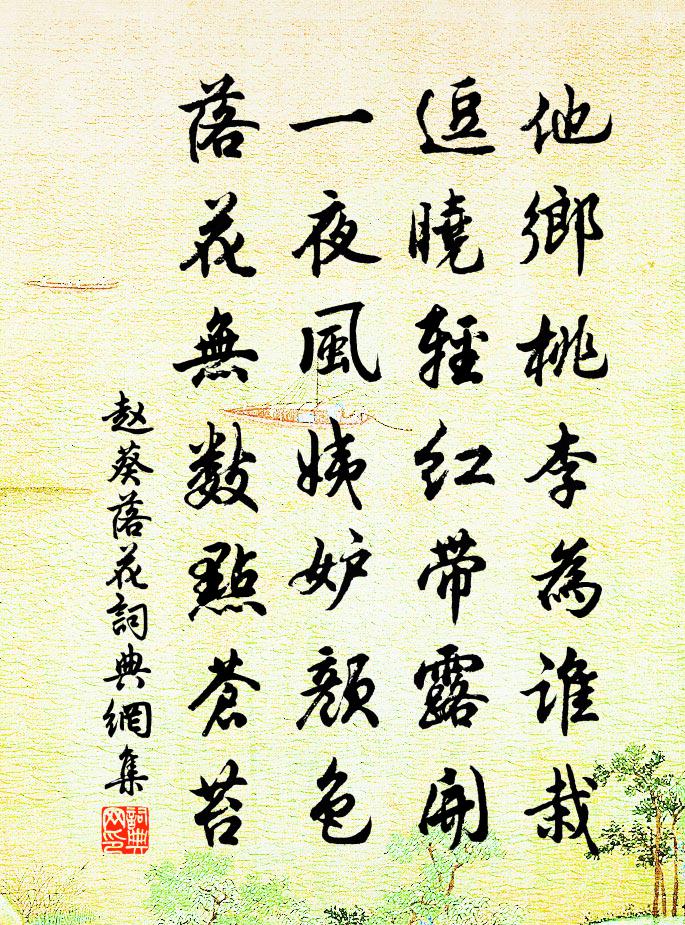 他鄉桃李為誰栽
逗曉輕红带露開
一夜風姨妒顔色
落花無數點蒼苔
赵葵落花詞典網集
詞典網印